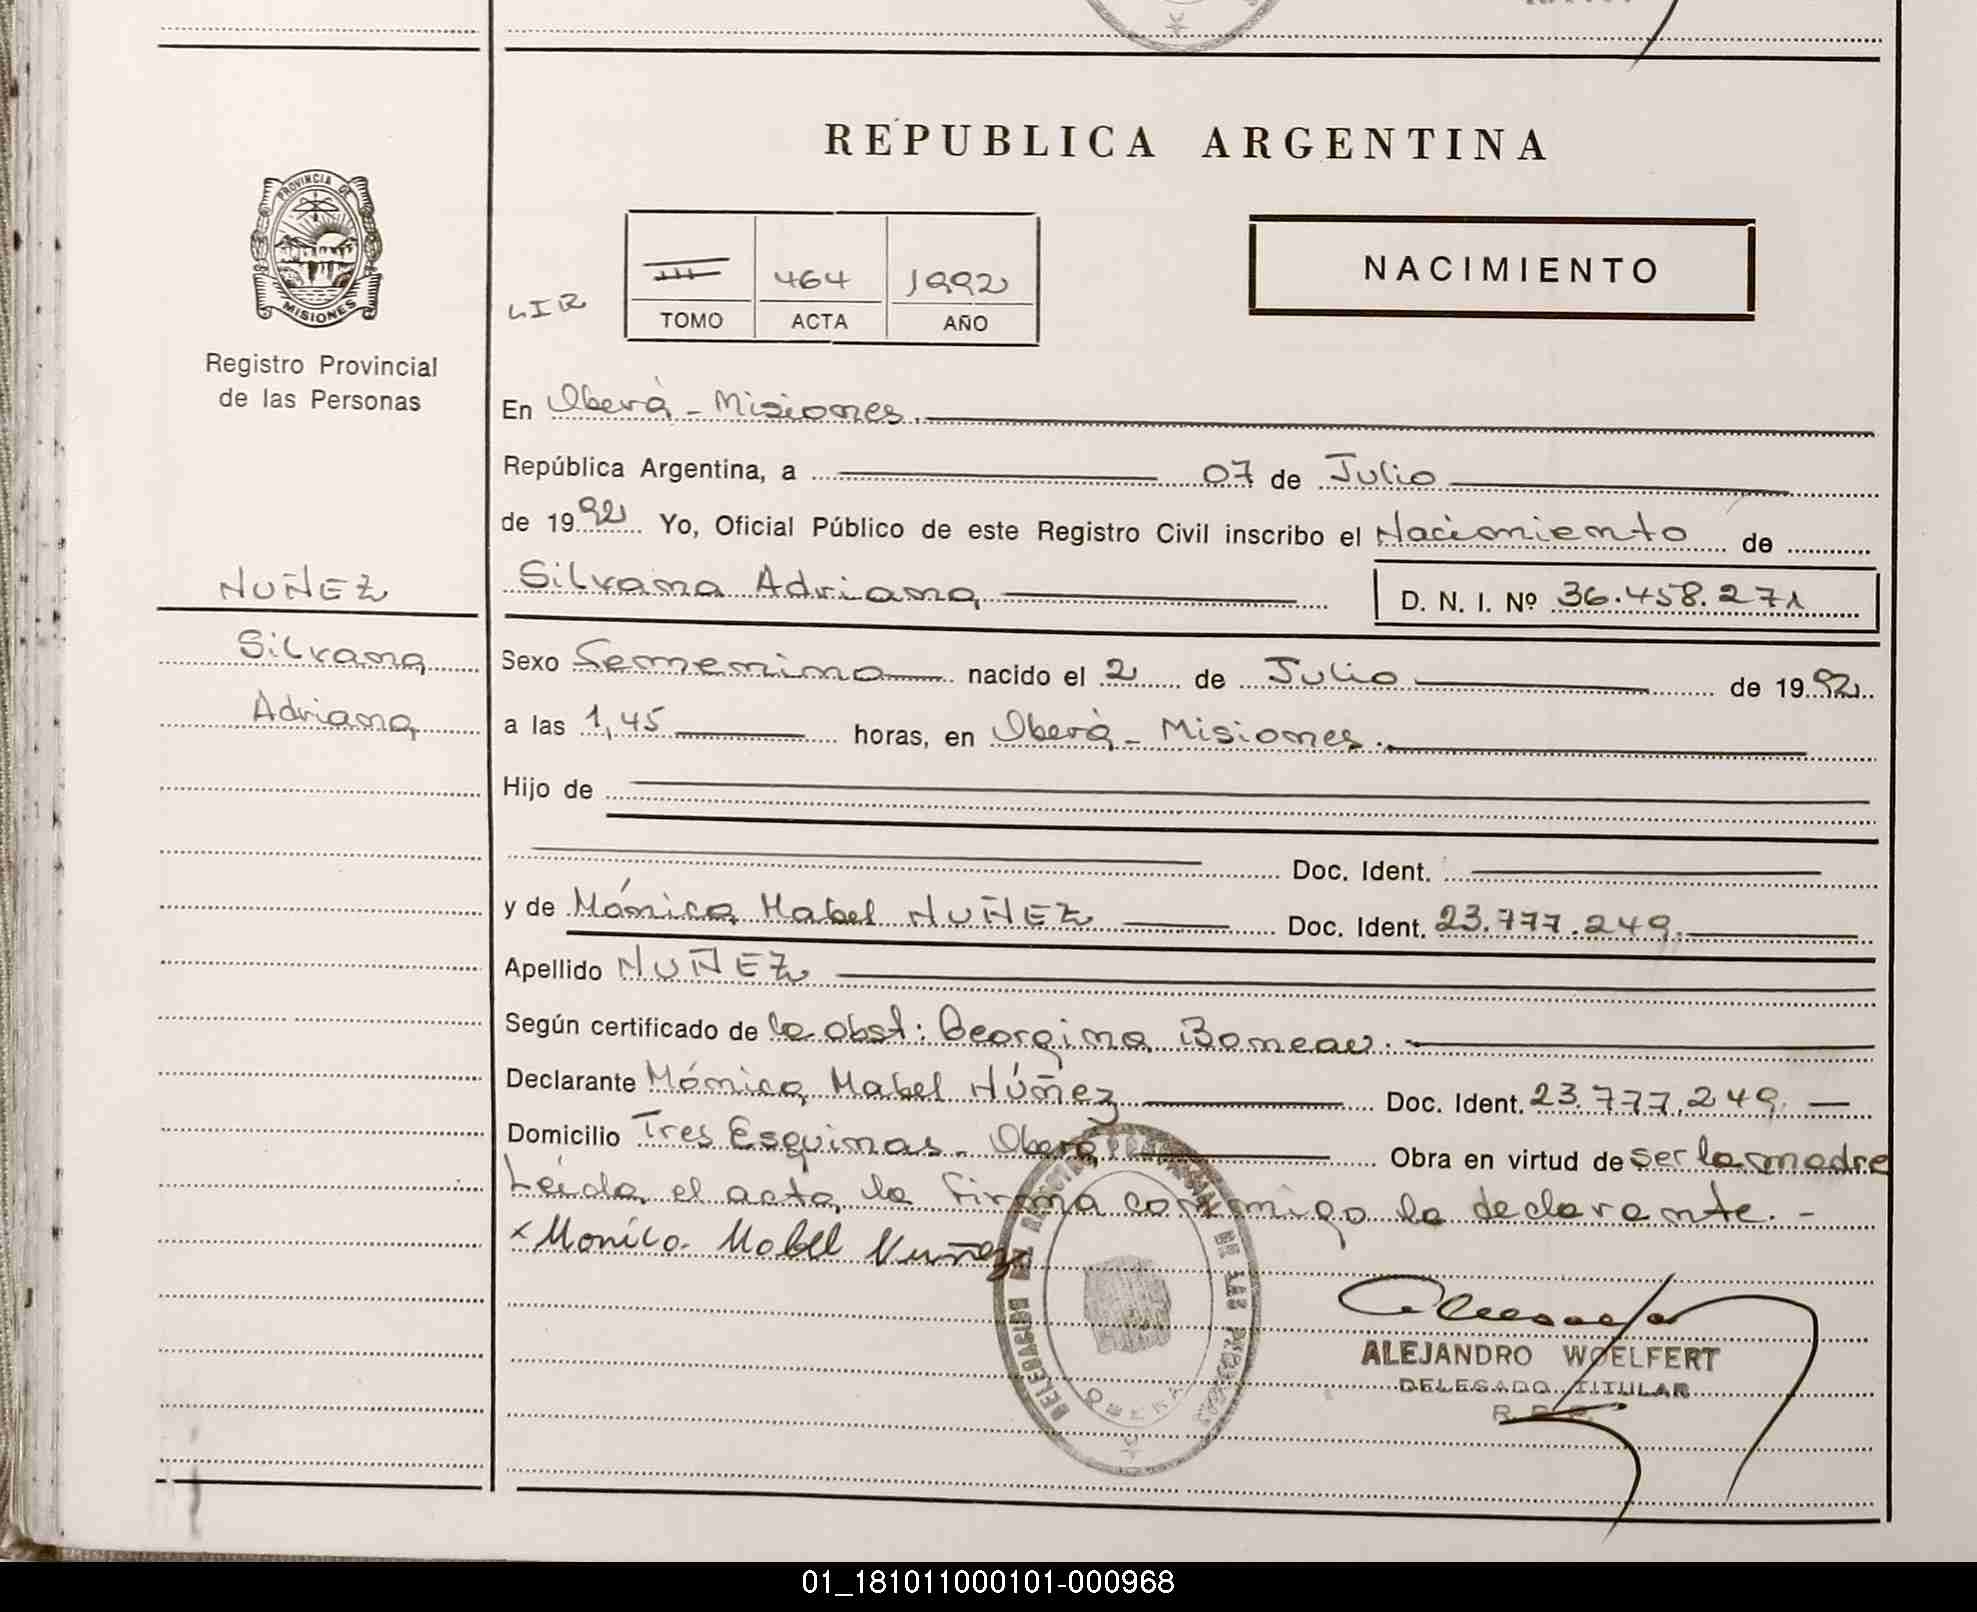 REPUBLICA ARGENTINA
PROVINCIA DE
MISIONES
Registro Provincial
de las Personas
III 464 1992
TOMO ACTA AÑO
NACIMIENTO
En Oberá - Misiones.
República Argentina, a 07 de Julio
de 1992 Yo, Oficial Público de este Registro Civil inscribo el Nacimiento de
NUÑEZ
Silvana Adriana D. N. I. Nº 36.458.271
Silvana
Adriana
Sexo Femenino nacido el 2 de Julio de 1992
a las 1,45 horas, en Oberá - Misiones.
Hijo de
Doc. Ident.
y de Mónica Mabel NUÑEZ Doc. Ident. 23.777.249.
Apellido NUÑEZ
Según certificado de la obst: Georgina Boneau.
Declarante Mónica Mabel Núñez Doc. Ident. 23.777.249. —
Domicilio Tres Esquinas - Oberá Obra en virtud de ser la madre
Leída el acta, la firma conmigo la declarante. -
x Monica Mabel Nuñez
DELEGACION DEL REGISTRO PROVINCIAL DE LAS PERSONAS
OBERA
ALEJANDRO WOELFERT
DELEGADO TITULAR
R. P. P.
01_181011000101-000968